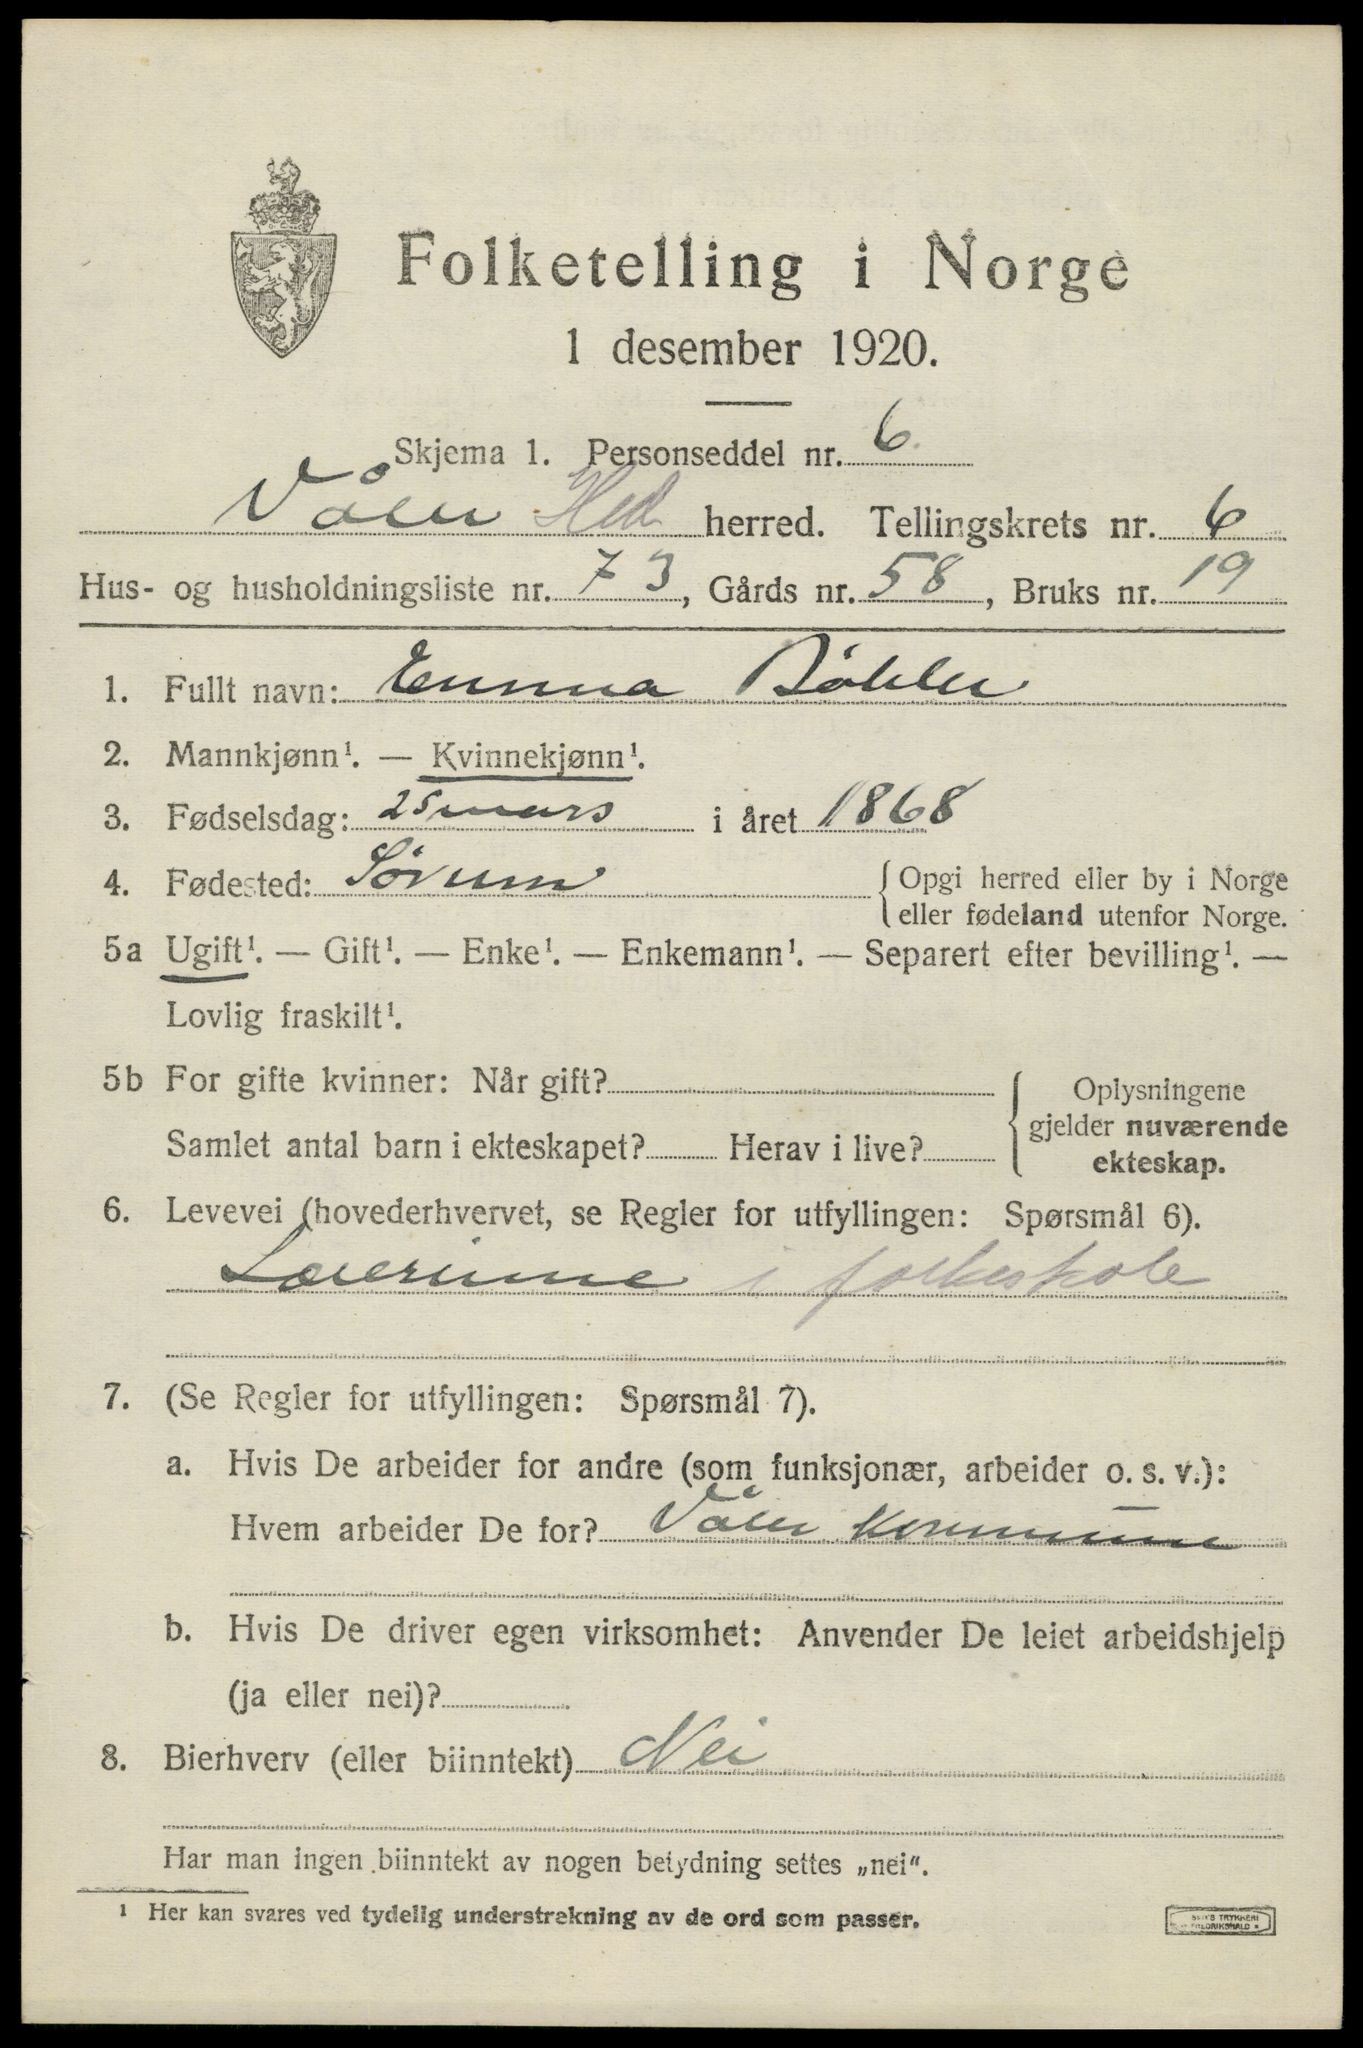 Folketelling i Norge
1 desember 1920.
Skjema 1. Personseddel nr. 6
Våler Hed herred. Tellingskrets nr. 6
Hus- og husholdningsliste nr. 73, Gårds nr. 58, Bruks nr. 19
1. Fullt navn: Emma Bøhler
2. Mannkjønn¹. — Kvinnekjønn¹.
3. Fødselsdag: 25 mars i året 1868
4. Fødested: Sørum {Opgi herred eller by i Norge
eller fødeland utenfor Norge.
5a Ugift¹. — Gift¹. — Enke¹. — Enkemann¹. — Separert efter bevilling¹. —
Lovlig fraskilt¹.
5b For gifte kvinner: Når gift?
Samlet antal barn i ekteskapet? Herav i live?
Oplysningene
gjelder nuværende
ekteskap.
6. Levevei (hovederhvervet, se Regler for utfyllingen: Spørsmål 6).
Lærerinne i folkeskole
7. (Se Regler for utfyllingen: Spørsmål 7).
a. Hvis De arbeider for andre (som funksjonær, arbeider o. s. v.):
Hvem arbeider De for? Våler kommune
b. Hvis De driver egen virksomhet: Anvender De leiet arbeidshjelp
(ja eller nei)?
8. Bierhverv (eller biinntekt) Nei
Har man ingen biinntekt av nogen betydning settes „nei".
¹ Her kan svares ved tydelig understrekning av de ord som passer.
TRYKKERI
FREDRIKSHALD